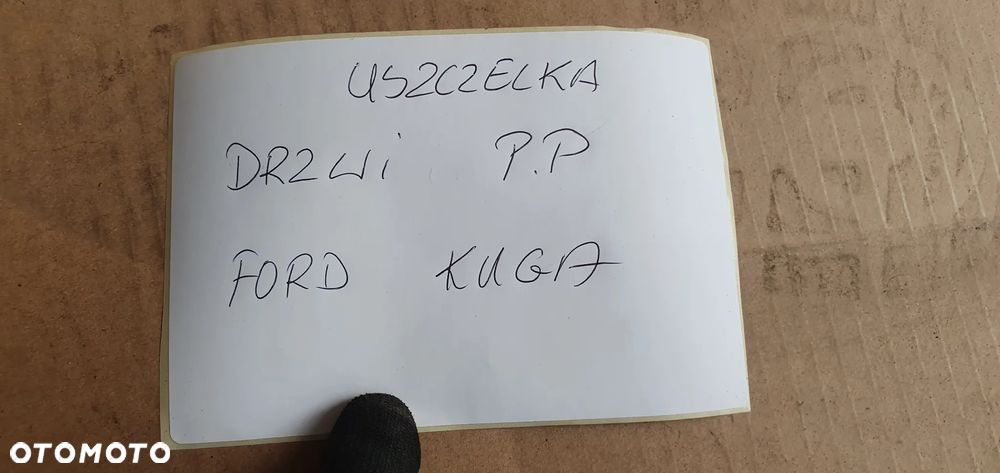 USZCZELKA
DRZWI P.P
FORD KUGA
OTOMOTO